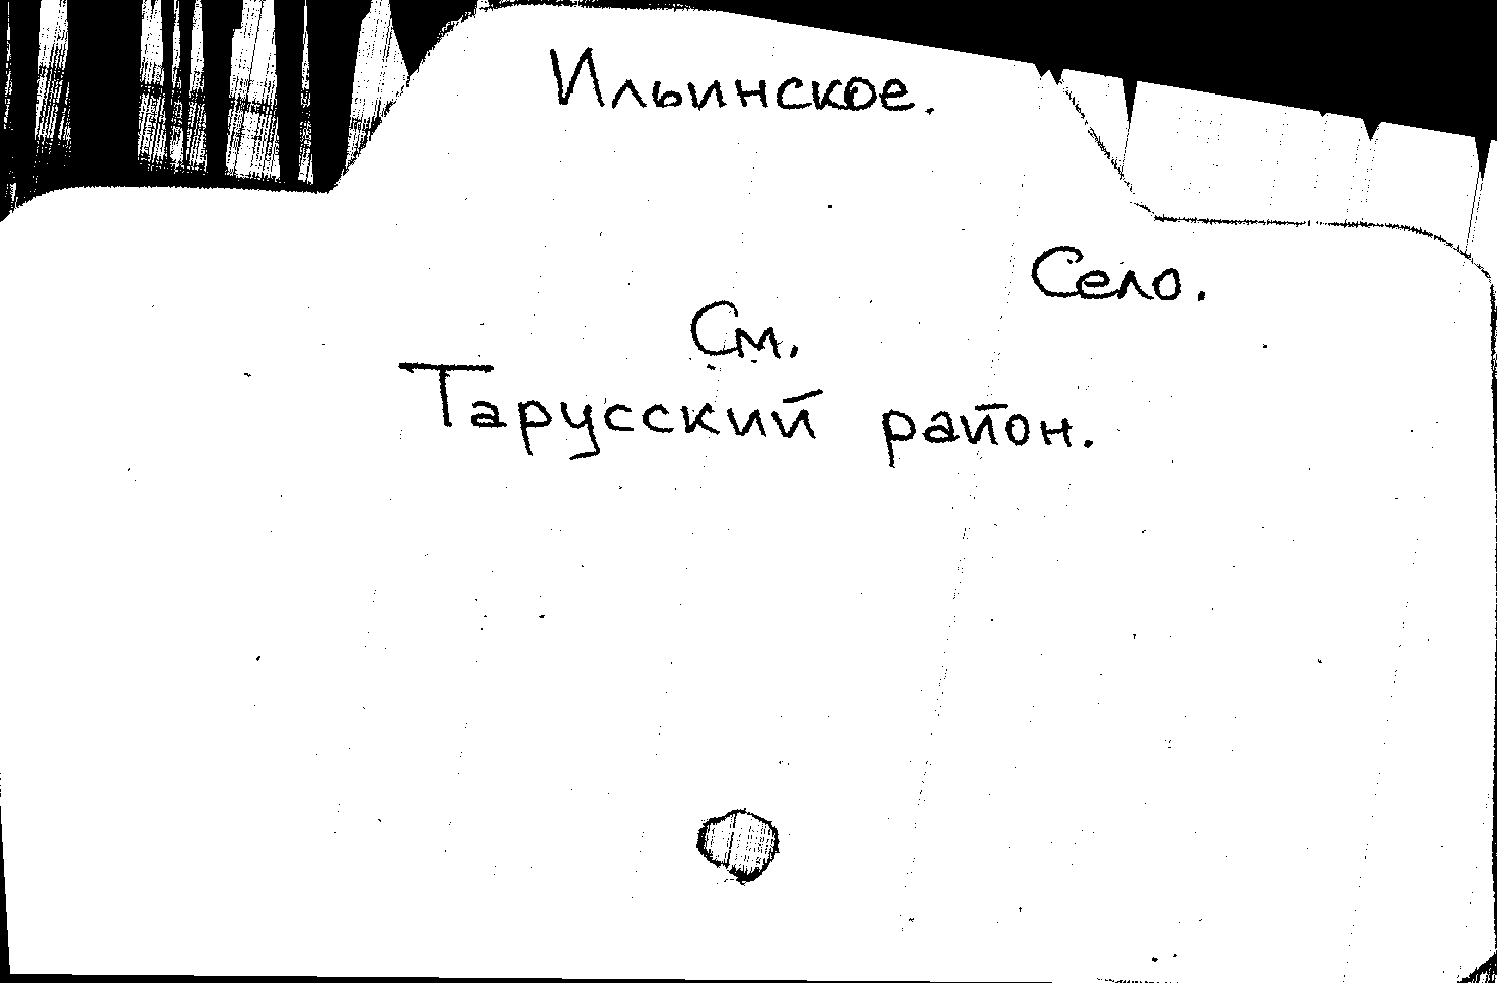 Ильинское.
Село.
См.
Тарусский район.